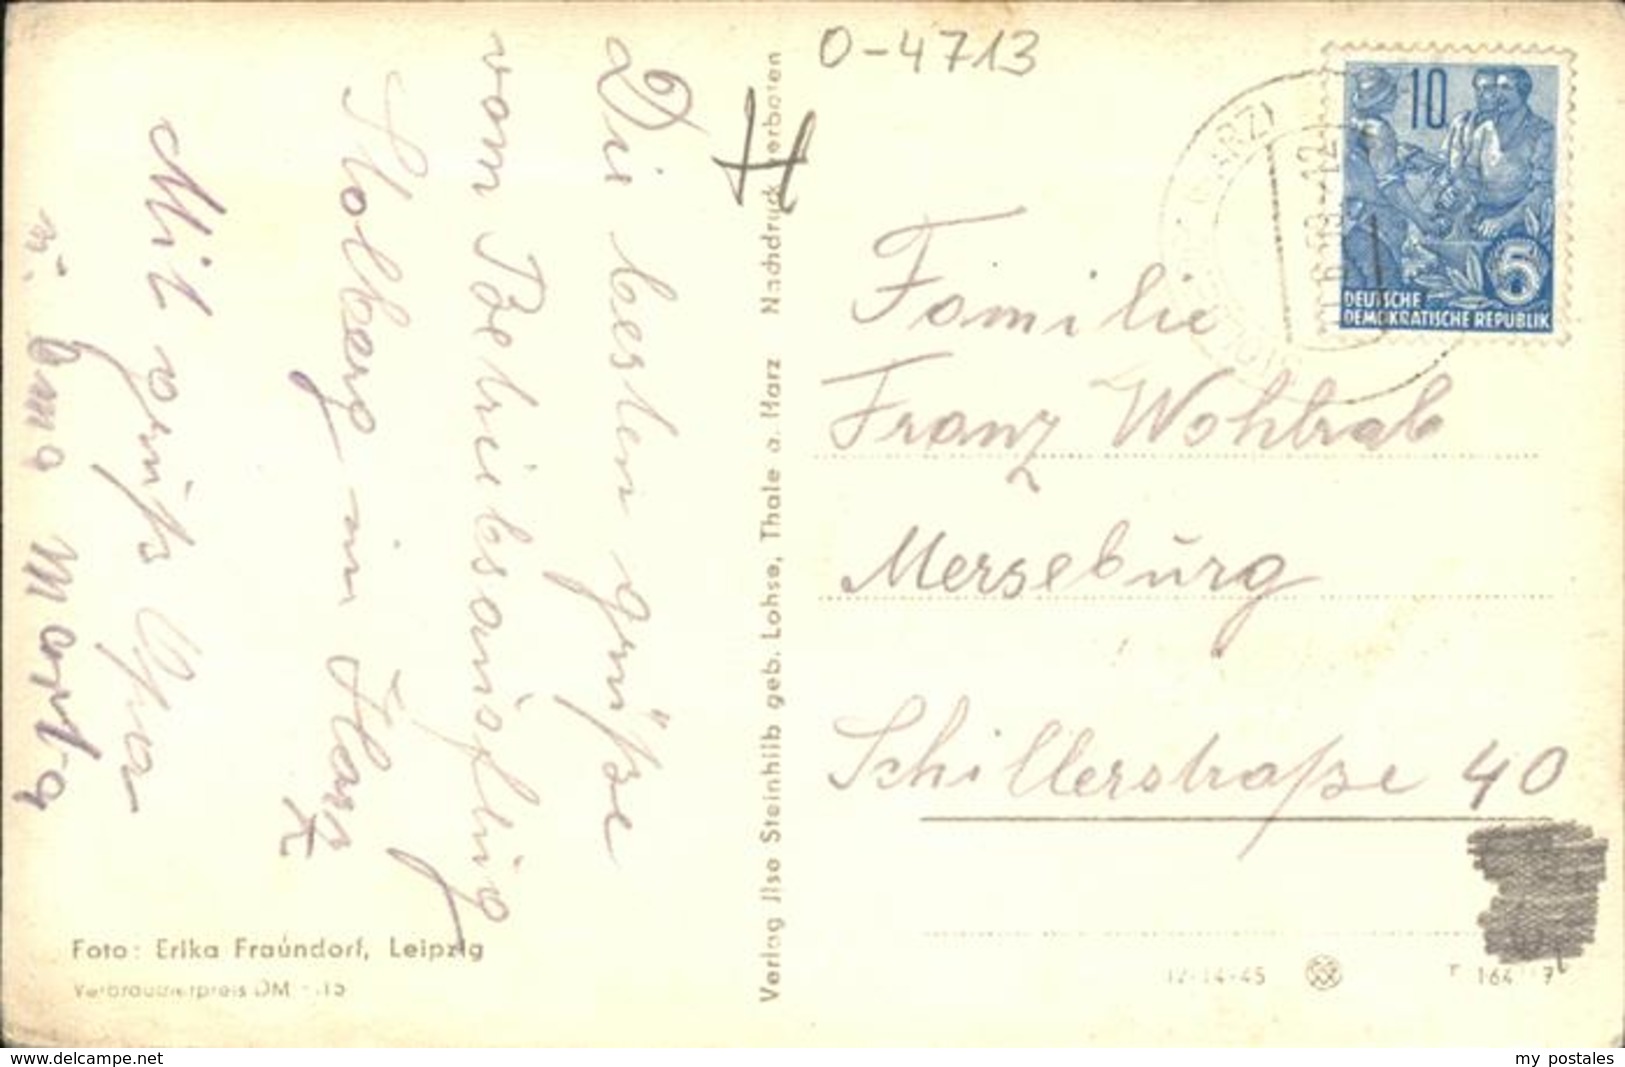 O-4713
H
Die besten grüße
vom Betriebsausflug
Stolberg im Harz
Mit gruß Opa
u. Oma Marta
Familie
Franz Wohlrab
Merseburg
Schillerstraße 40
(HARZ)
10
5
DEUTSCHE
DEMOKRATISCHE REPUBLIK
Verlag Ilse Steinhilb geb. Lohse, Thale a. Harz Nachdruck verboten
Foto: Erika Fraundorf, Leipzig
Verbraucherpreis DM -.15
12-14-45
www.delcampe.net
my postales